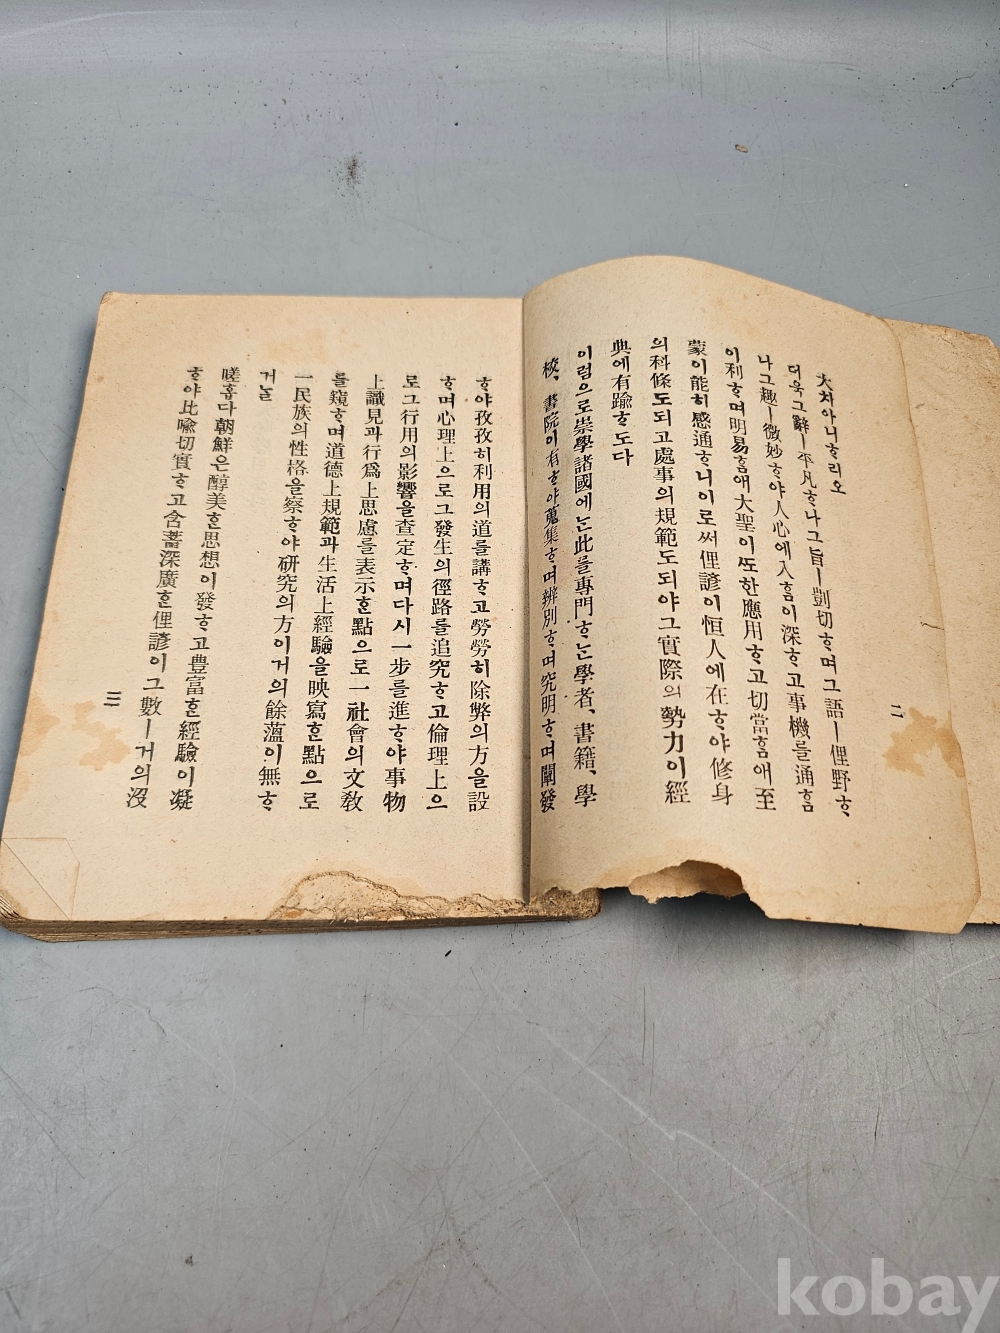 大차아니ᄒᆞ리오
더욱그辭ㅣ平凡ᄒᆞ나그旨ㅣ剴切ᄒᆞ며그語ㅣ俚野ᄒᆞ
나그趣ㅣ微妙ᄒᆞ야人心에入ᄒᆞᆷ이深ᄒᆞ고事機를通ᄒᆞᆷ
이利ᄒᆞ며明易ᄒᆞᆷ애大聖이ᄯᅩ한應用ᄒᆞ고切當ᄒᆞᆷ애至
蒙이能히感通ᄒᆞ니이로써俚諺이恒人에在ᄒᆞ야修身
의科條도되고處事의規範도되야그實際의勢力이經
典에有踰ᄒᆞ도다
이럼으로崇學諸國에ᄂᆞᆫ此를專門ᄒᆞᄂᆞᆫ學者、書籍、學
校、書院이有ᄒᆞ야蒐集ᄒᆞ며辨別ᄒᆞ며究明ᄒᆞ며闡發
二
ᄒᆞ야孜孜히利用의道를講ᄒᆞ고勞勞히除弊의方을設
ᄒᆞ며心理上으로그發生의徑路를追究ᄒᆞ고倫理上으
로그行用의影響을査定ᄒᆞ며다시一步를進ᄒᆞ야事物
上識見과行爲上思慮를表示ᄒᆞᆫ點으로一社會의文敎
를窺ᄒᆞ며道德上規範과生活上經驗을映寫ᄒᆞᆫ點으로
一民族의性格을察ᄒᆞ야硏究의方이거의餘薀이無ᄒᆞ
거ᄂᆞᆯ
嗟홉다朝鮮은醇美ᄒᆞᆫ思想이發ᄒᆞ고豊富ᄒᆞᆫ經驗이凝
ᄒᆞ야比喩切實ᄒᆞ고含蓄深廣ᄒᆞᆫ俚諺이그數ㅣ거의沒
三
kobay